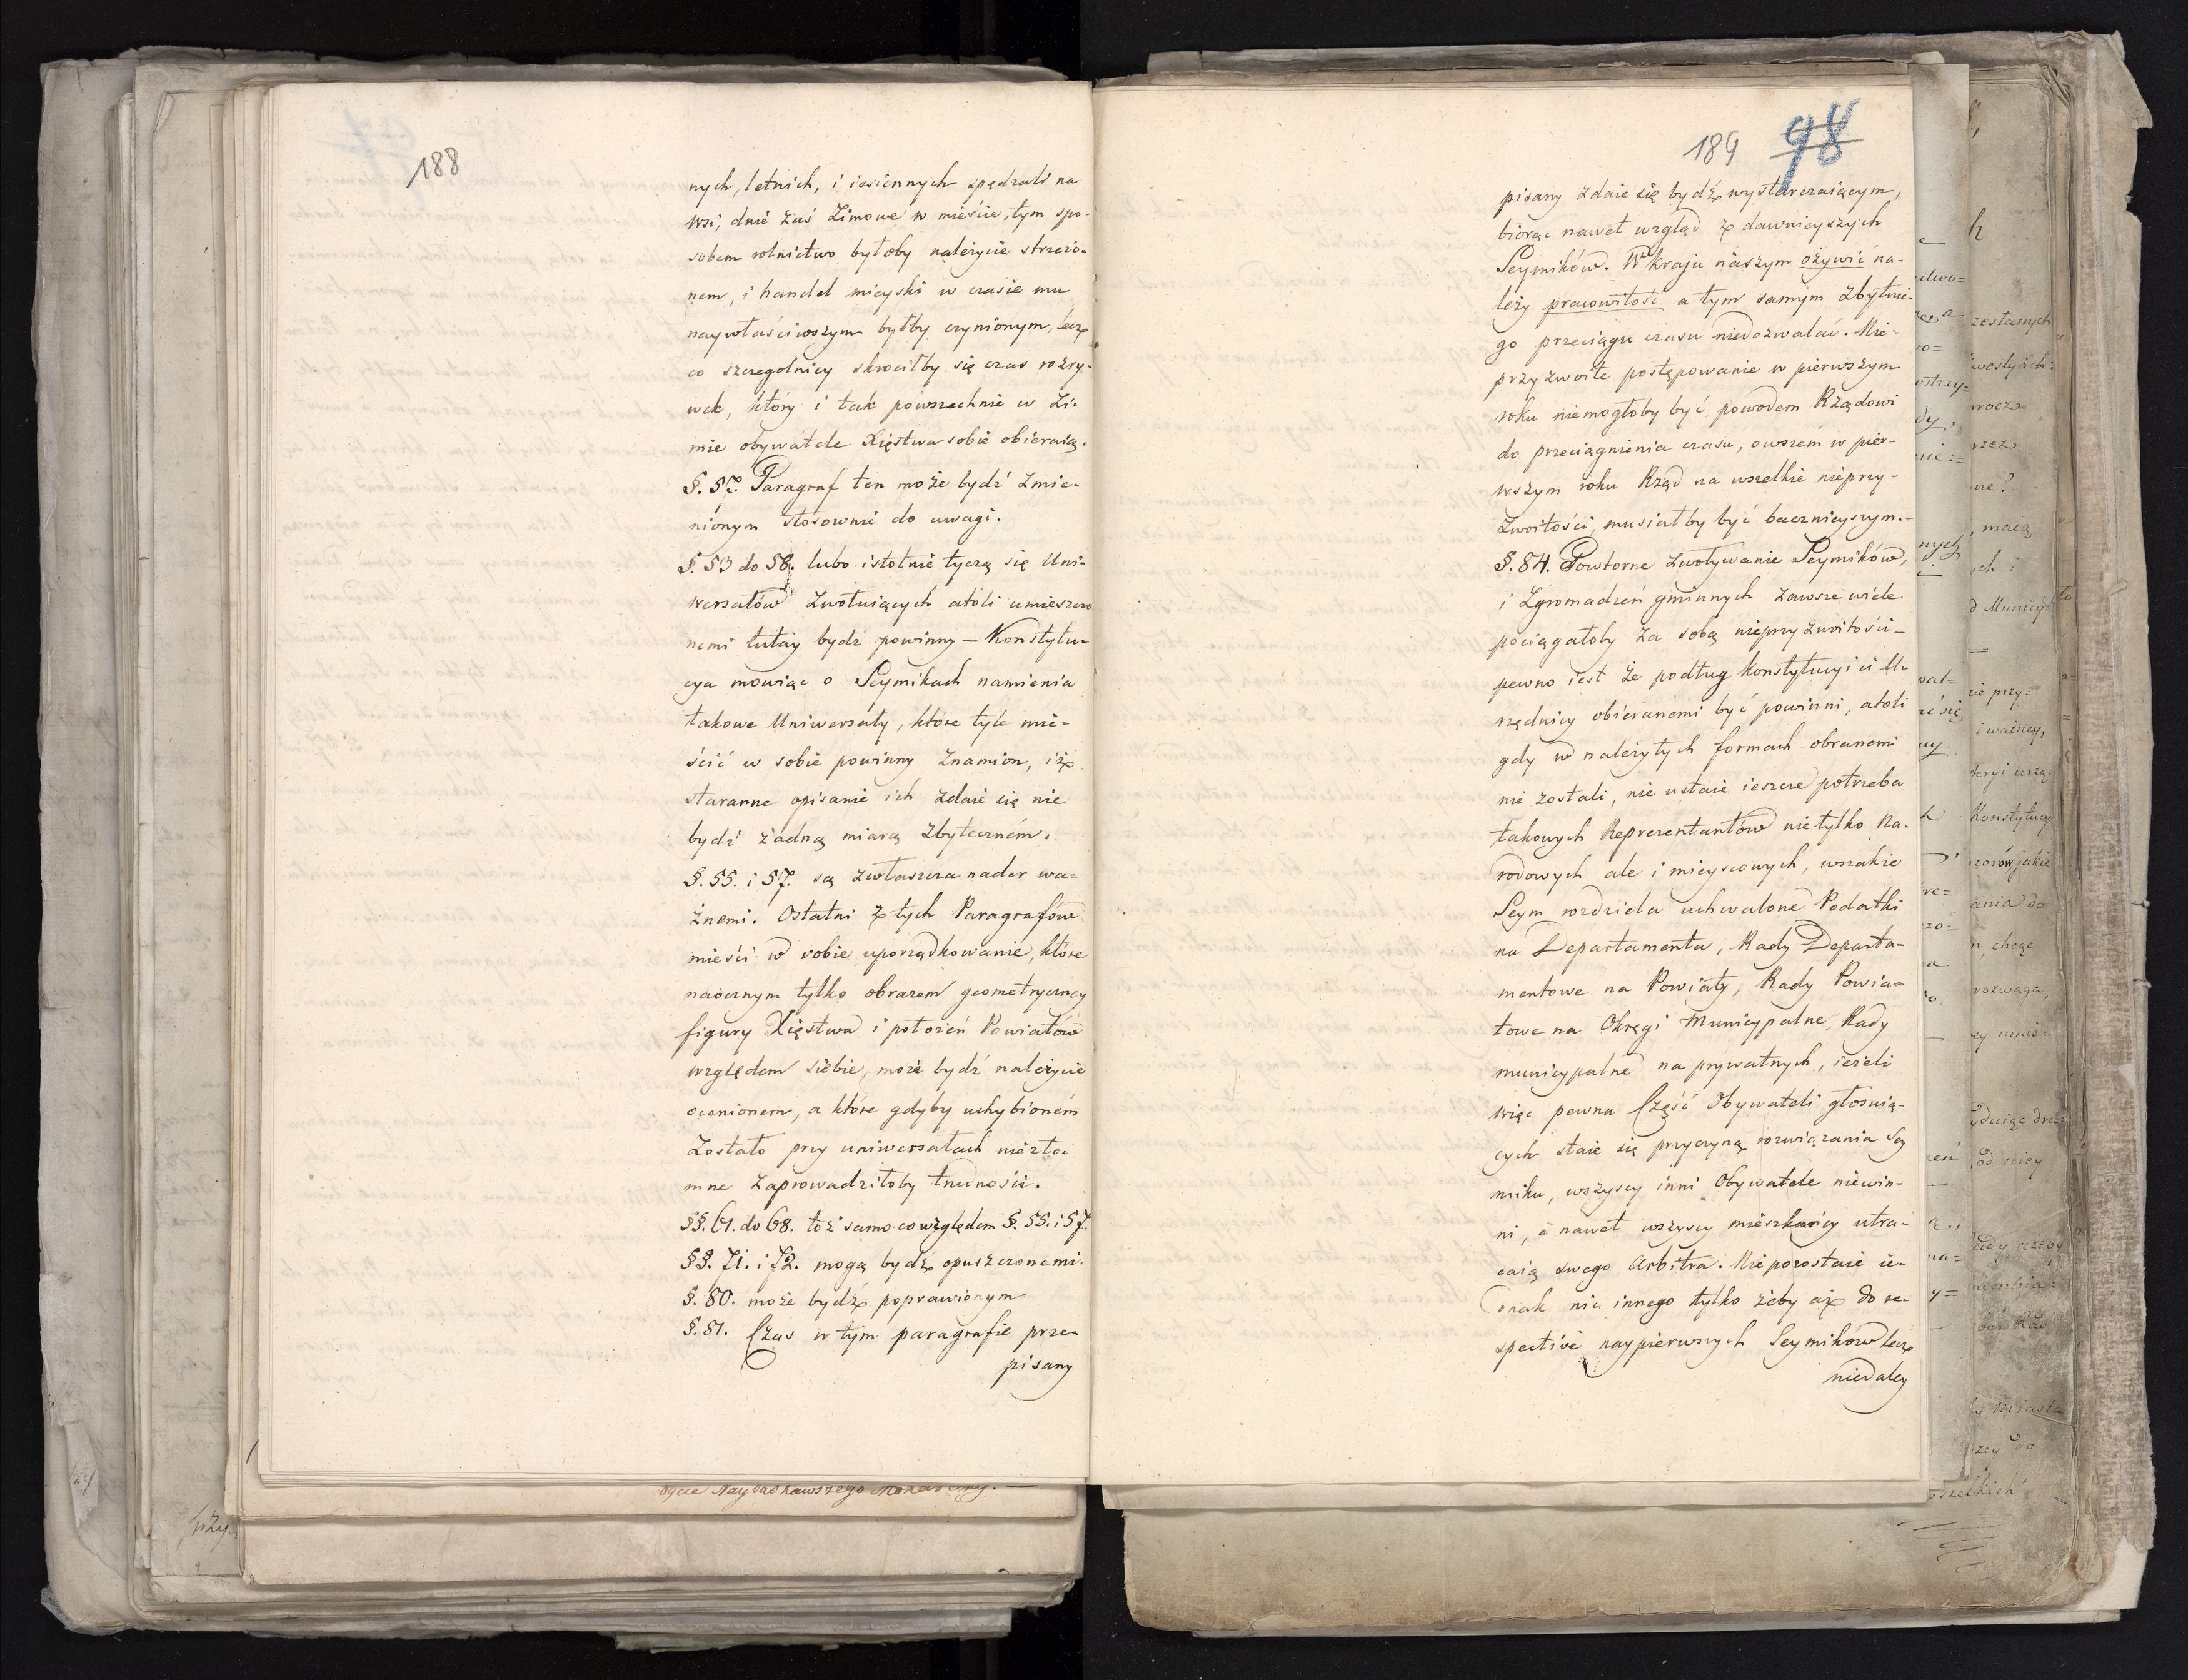 188
nych, letnich, i iesiennych spędzali na
wsi, dnie zaś zimowe w mieście, tym spo-
sobem rolnictwo byłoby należycie strzeżo-
nem, i handel mieyski w czasie mu
naywłaściwszym byłby czynionym, lecz
co szczegolniey skrociłby się czas rozry-
wek, który i tak powszechnie w Zi-
mie obywatele Xięstwa sobie obieraią.
§. 57. Paragraf ten może bydź zmie-
nionym stosownie do uwagi.
§. 53 do 58. lubo istotnie tyczą się Uni-
wersałów zwołuiących atóli umieszczo
nemi tutay bydź powinny — Konstytu-
cya mowiąc o Seymikach namienia
takowe Uniwersały, które tyle mie-
ścić w sobie powinny znamion, iż
staranne opisanie ich zdaie się nie
bydź żadną miarą zbytecznem.
§. 55. i 57. są zwłaszcza nader wa-
żnemi. Ostatni z tych Paragrafów
mieści w sobie uporządkowanie, które
naocznym tylko obrazem geometryczney
figury Xięstwa i położeń Powiatów
względem siebie, może bydź należycie
ocenionem, a które gdyby uchybionem
zostało przy uniwersałach niezło-
mne zaprowadziłoby trudności.
§§. 61. do 68. toż samo co względem §. 55. i 57.
§§. 71. i 72. mogą bydź opuszczonemi.
§. 80. może bydź poprawionym
§. 81. Czas w tym paragrafie prze-
pisany
189 98
pisany zdaie się bydź wystarczaiącym,
biorąc nawet wzgląd z dawnieyszych
Seymików. W kraju naszym ożywić na-
leży prawowitość a tym samym zbytnie-
go przeciągu czasu niedozwalać. Nie-
przyzwoite postępowanie w pierwszym
roku niemogłoby być powodem Rządowi
do przeciągnienia czasu, owszem w pier-
wszym roku Rząd na wszelkie nieprzy-
zwoitości musiałby być bacznieyszym.-
§. 84. Powtorne zwoływanie Seymików,
i Zgromadzeń gminnych zawsze wiele
pociągałoby za sobą nieprzyzwoitości -
pewno iest że podług Konstytucyi ci U-
rzędnicy obieranemi być powinni, atoli
gdy w należytych formach obranemi
nie zostali, nie ustaie ieszcze potrzeba
takowych Reprezentantów nietylko Na-
rodowych ale i mieyscowych, wszakże
Seym rozdziela uchwalone Podatki
na Departamenta, Rady Departa-
mentowe na Powiaty, Rady Powia-
towe na Okręgi Municypalne, Rady
municypalne na prywatnych, ieżeli
więc pewna Część Obywateli głosuią-
cych staie się przyczyną rozwiązania Sey
miku, wszyscy inni Obywatele niewin-
ni, a nawet wszyscy mieszkańcy utra-
caią swego Arbitra. Niepozostaie ie-
dnak nic innego tylko żeby aż do re-
spective naypierwszych Seymików lecz
niedaley